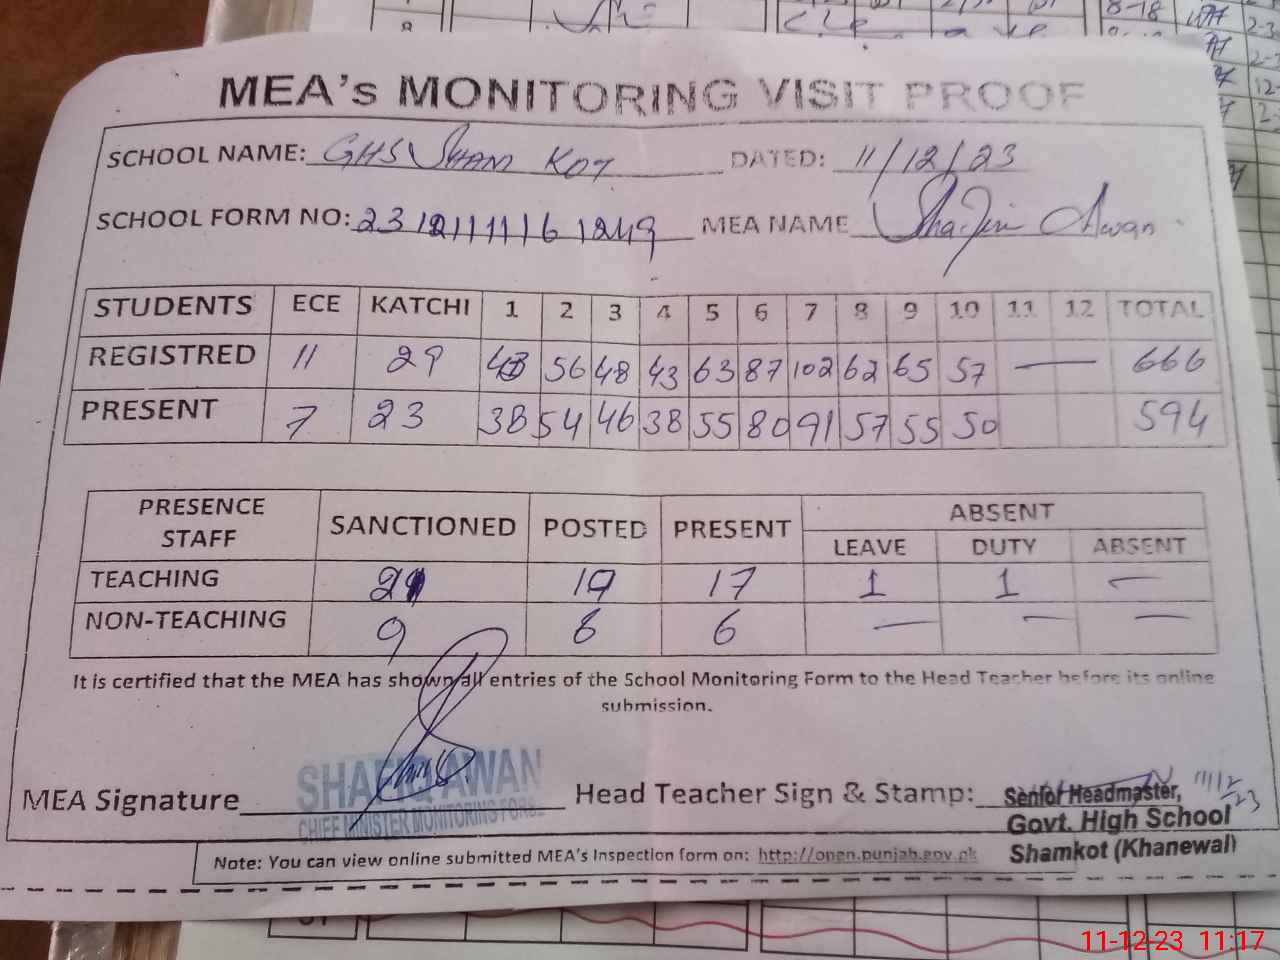 MEA's MONITORING VISIT PROOF
SCHOOL NAME: GHS SHAM KOT DATED: 11/12/23
SCHOOL FORM NO: MEA NAME Awan
STUDENTS ECE KATCHI 1 2 3 4 5 6 7 8 9 10 11 12 TOTAL
REGISTRED 11 29 43 56 48 43 63 87 102 62 65 57 — 666
PRESENT 7 23 38 54 46 38 55 80 91 57 55 50 594
PRESENCE STAFF SANCTIONED POSTED PRESENT ABSENT
LEAVE DUTY ABSENT
TEACHING 21 19 17 1 1 —
NON-TEACHING 9 6 6 — — —
It is certified that the MEA has shown all entries of the School Monitoring Form to the Head Teacher before its online
submission.
MEA Signature SHAFIQ AWAN
CHIEF MINISTER MONITORING FORCE
Head Teacher Sign & Stamp: Senior Headmaster, 11/12/23
Govt. High School
Shamkot (Khanewal)
Note: You can view online submitted MEA's Inspection form on: http://open.punjab.gov.pk
11-12-23 11:17